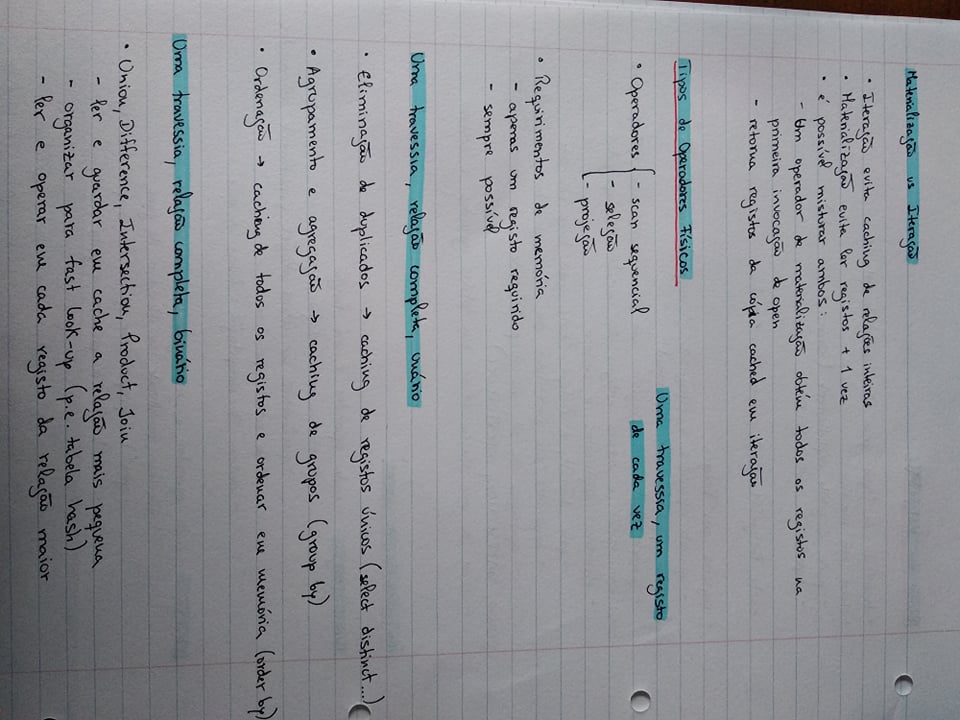 Materialização vs Iteração
• Iteração evita caching de relações inteiras
• Materialização evita ler registos + 1 vez
• é possível misturar ambos:
- Um operador de materialização obtém todos os registos na
primeira invocação de open
- retorna registos da cópia cached em iteração
Tipos de Operadores Físicos
Uma travessia, um registo
de cada vez
• Operadores { - scan sequencial
- seleção
- projeção
• Requirimentos de memória
- apenas um registo requirido
- sempre possível
Uma travessia, relação completa, unário
• Eliminação de duplicados → caching de registos únicos (select distinct...)
• Agrupamento e agregação → caching de grupos (group by)
• Ordenação → caching de todos os registos e ordenar em memória (order by)
Uma travessia, relação completa, binário
• Union, Difference, Intersection, Product, Join
- ler e guardar em cache a relação mais pequena
- organizar para fast look-up (p.e. tabela hash)
- ler e operar em cada registo da relação maior